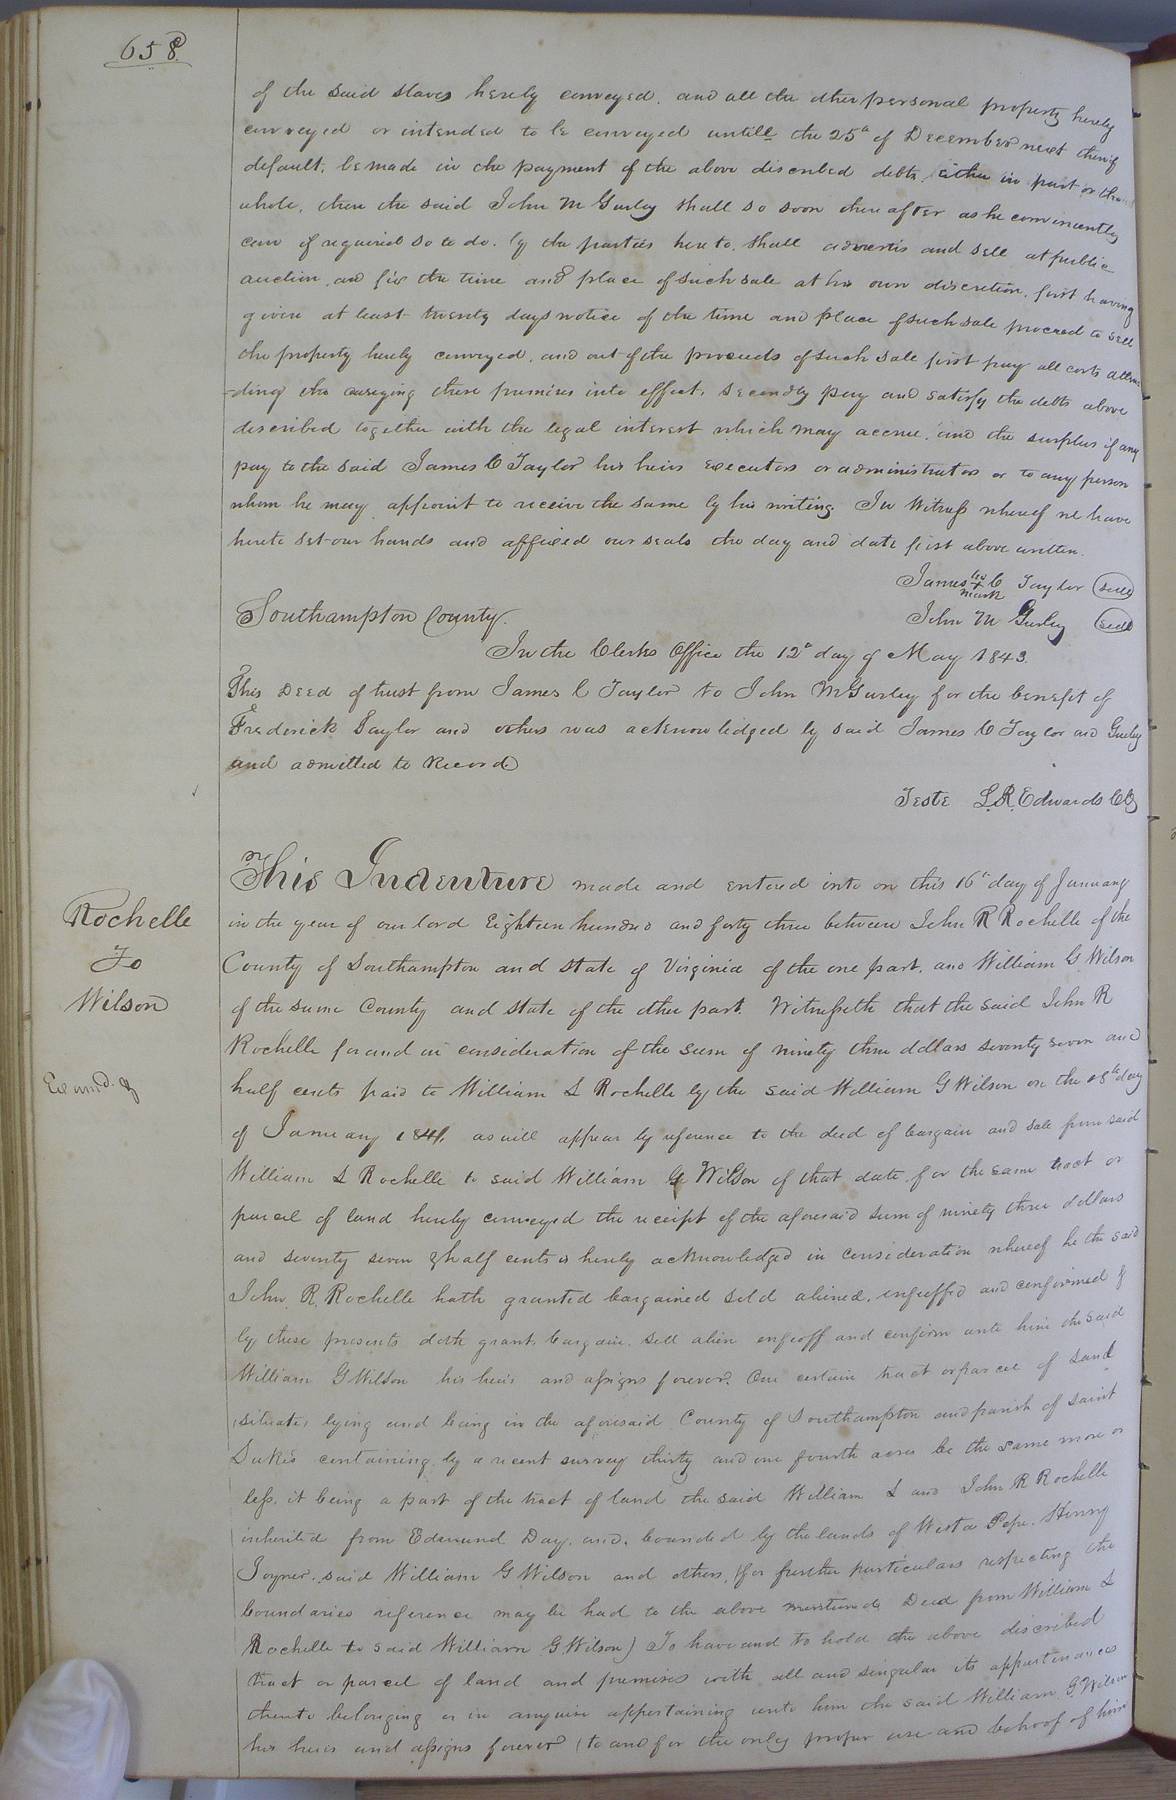 658
of the said slaves hereby conveyed, and all the other personal property hereby
conveyed or intended to be conveyed untill the 25th of December next then if
default, be made in the payment of the above discribed debts, either in part or the
whole, then the said John M Gurley shall so soon thereafter as he conviniently
can if required so to do, by the parties hereto, shall advertis and sell at public
auction, and fix the time and place of such sale at his own discretion, first having
given at least twenty days notice of the time and place of such sale proceed to sell
the property hereby conveyed, and out of the proceeds of such sale first pay all costs atten
-ding the carrying these premises into effect, secondly pay and satisfy the debts above
described together with the legal interest which may accrue, and the surplus if any
pay to the said James C Taylor his heirs executors or administrators or to any person
whom he may appoint to receive the same by his writing. In Witness whereof we have
hereto set our hands and affixed our seals the day and date first above written.
James his + mark C Taylor (seal)
John M Gurley (seal)
Southampton County.
In the Clerks Office the 12th day of May 1843.
This Deed of trust from James C Taylor to John M Gurley for the benefit of
Frederick Taylor and others was acknowledged by said James C Taylor and Gurley
and admitted to Record.
Teste L.R. Edwards Clk
This Indenture made and entered into on this 16th day of January
Rochelle
To
Wilson
in the year of our lord Eighteen hundred and forty three between John R Rochelle of the
County of Southampton and State of Virginia of the one part, and William G Wilson
of the same County and State of the other part. Witnesseth that the said John R
Rochelle for and in consideration of the sum of ninety three dollars seventy seven and
Examd.
half cents paid to William L Rochelle by the said William G Wilson on the 18th day
of January 1841, as will appear by reference to the deed of bargain and sale from said
William L Rochelle to said William G Wilson of that date, for the same tract or
parcel of land hereby conveyed the receipt of the aforesaid sum of ninety three dollars
and seventy seven & half cents is hereby acknowledged in consideration whereof he the said
John R. Rochelle hath granted bargained sold aliened, enfeoffed and confirmed &
by these presents doth grant, bargain, sell alien enfeoff and confirm unto him the said
William G Wilson his heirs and assigns forever. One certain tract or parcel of land
situate, lying and being in the aforesaid County of Southampton and parish of Saint
Lukes containing by a recent survey thirty and one fourth acres be the same more or
less, it being a part of the tract of land the said William L and John R Rochelle
inherited from Edmund Day, and, bounded by the lands of Pope, Henry
Joyner, said William G Wilson and others, (for further particulars respecting the
boundaries reference may be had to the above mentioned Deed from William L
Rochelle to said William G Wilson) To have and to hold the above discribed
tract or parcel of land and premises with all and singular its appurtenances
thereto belonging or in anywise appertaining unto him the said William G. Wilson
his heirs and assigns forever to and for the only proper use and behoof of him